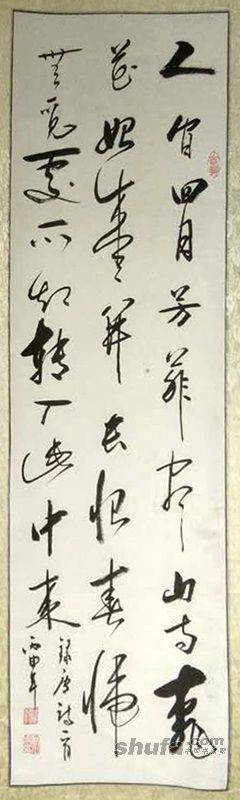 人间四月芳菲尽山寺桃
花始盛开长恨春归
無觅處不知转入此中来
录唐诗一首
丙申年